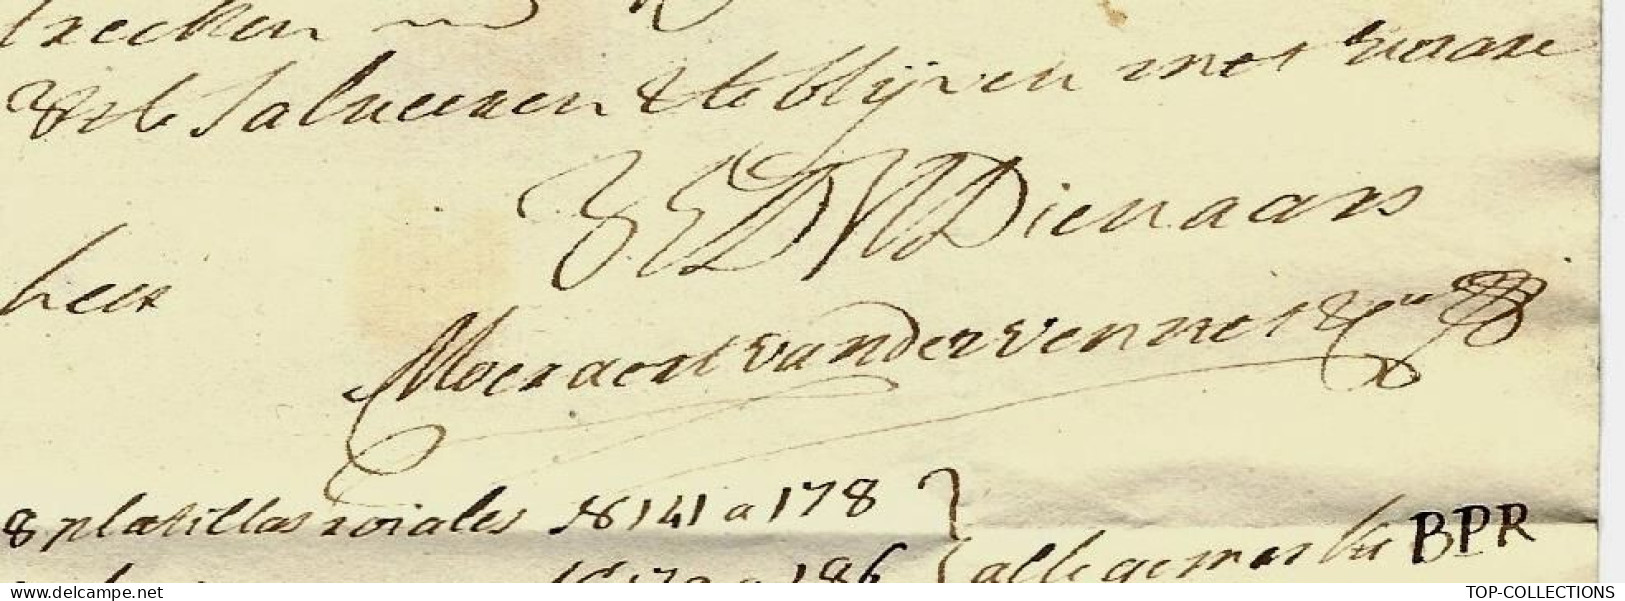 trecken
salueeren & te blijven met
UEDW Dienaars
heer
Moeraert van der Vennet &
8 platillas roiales N 141 a 178
N 179 a 186 alle gemerkt BPR
www.delcampe.net
TOP-COLLECTIONS